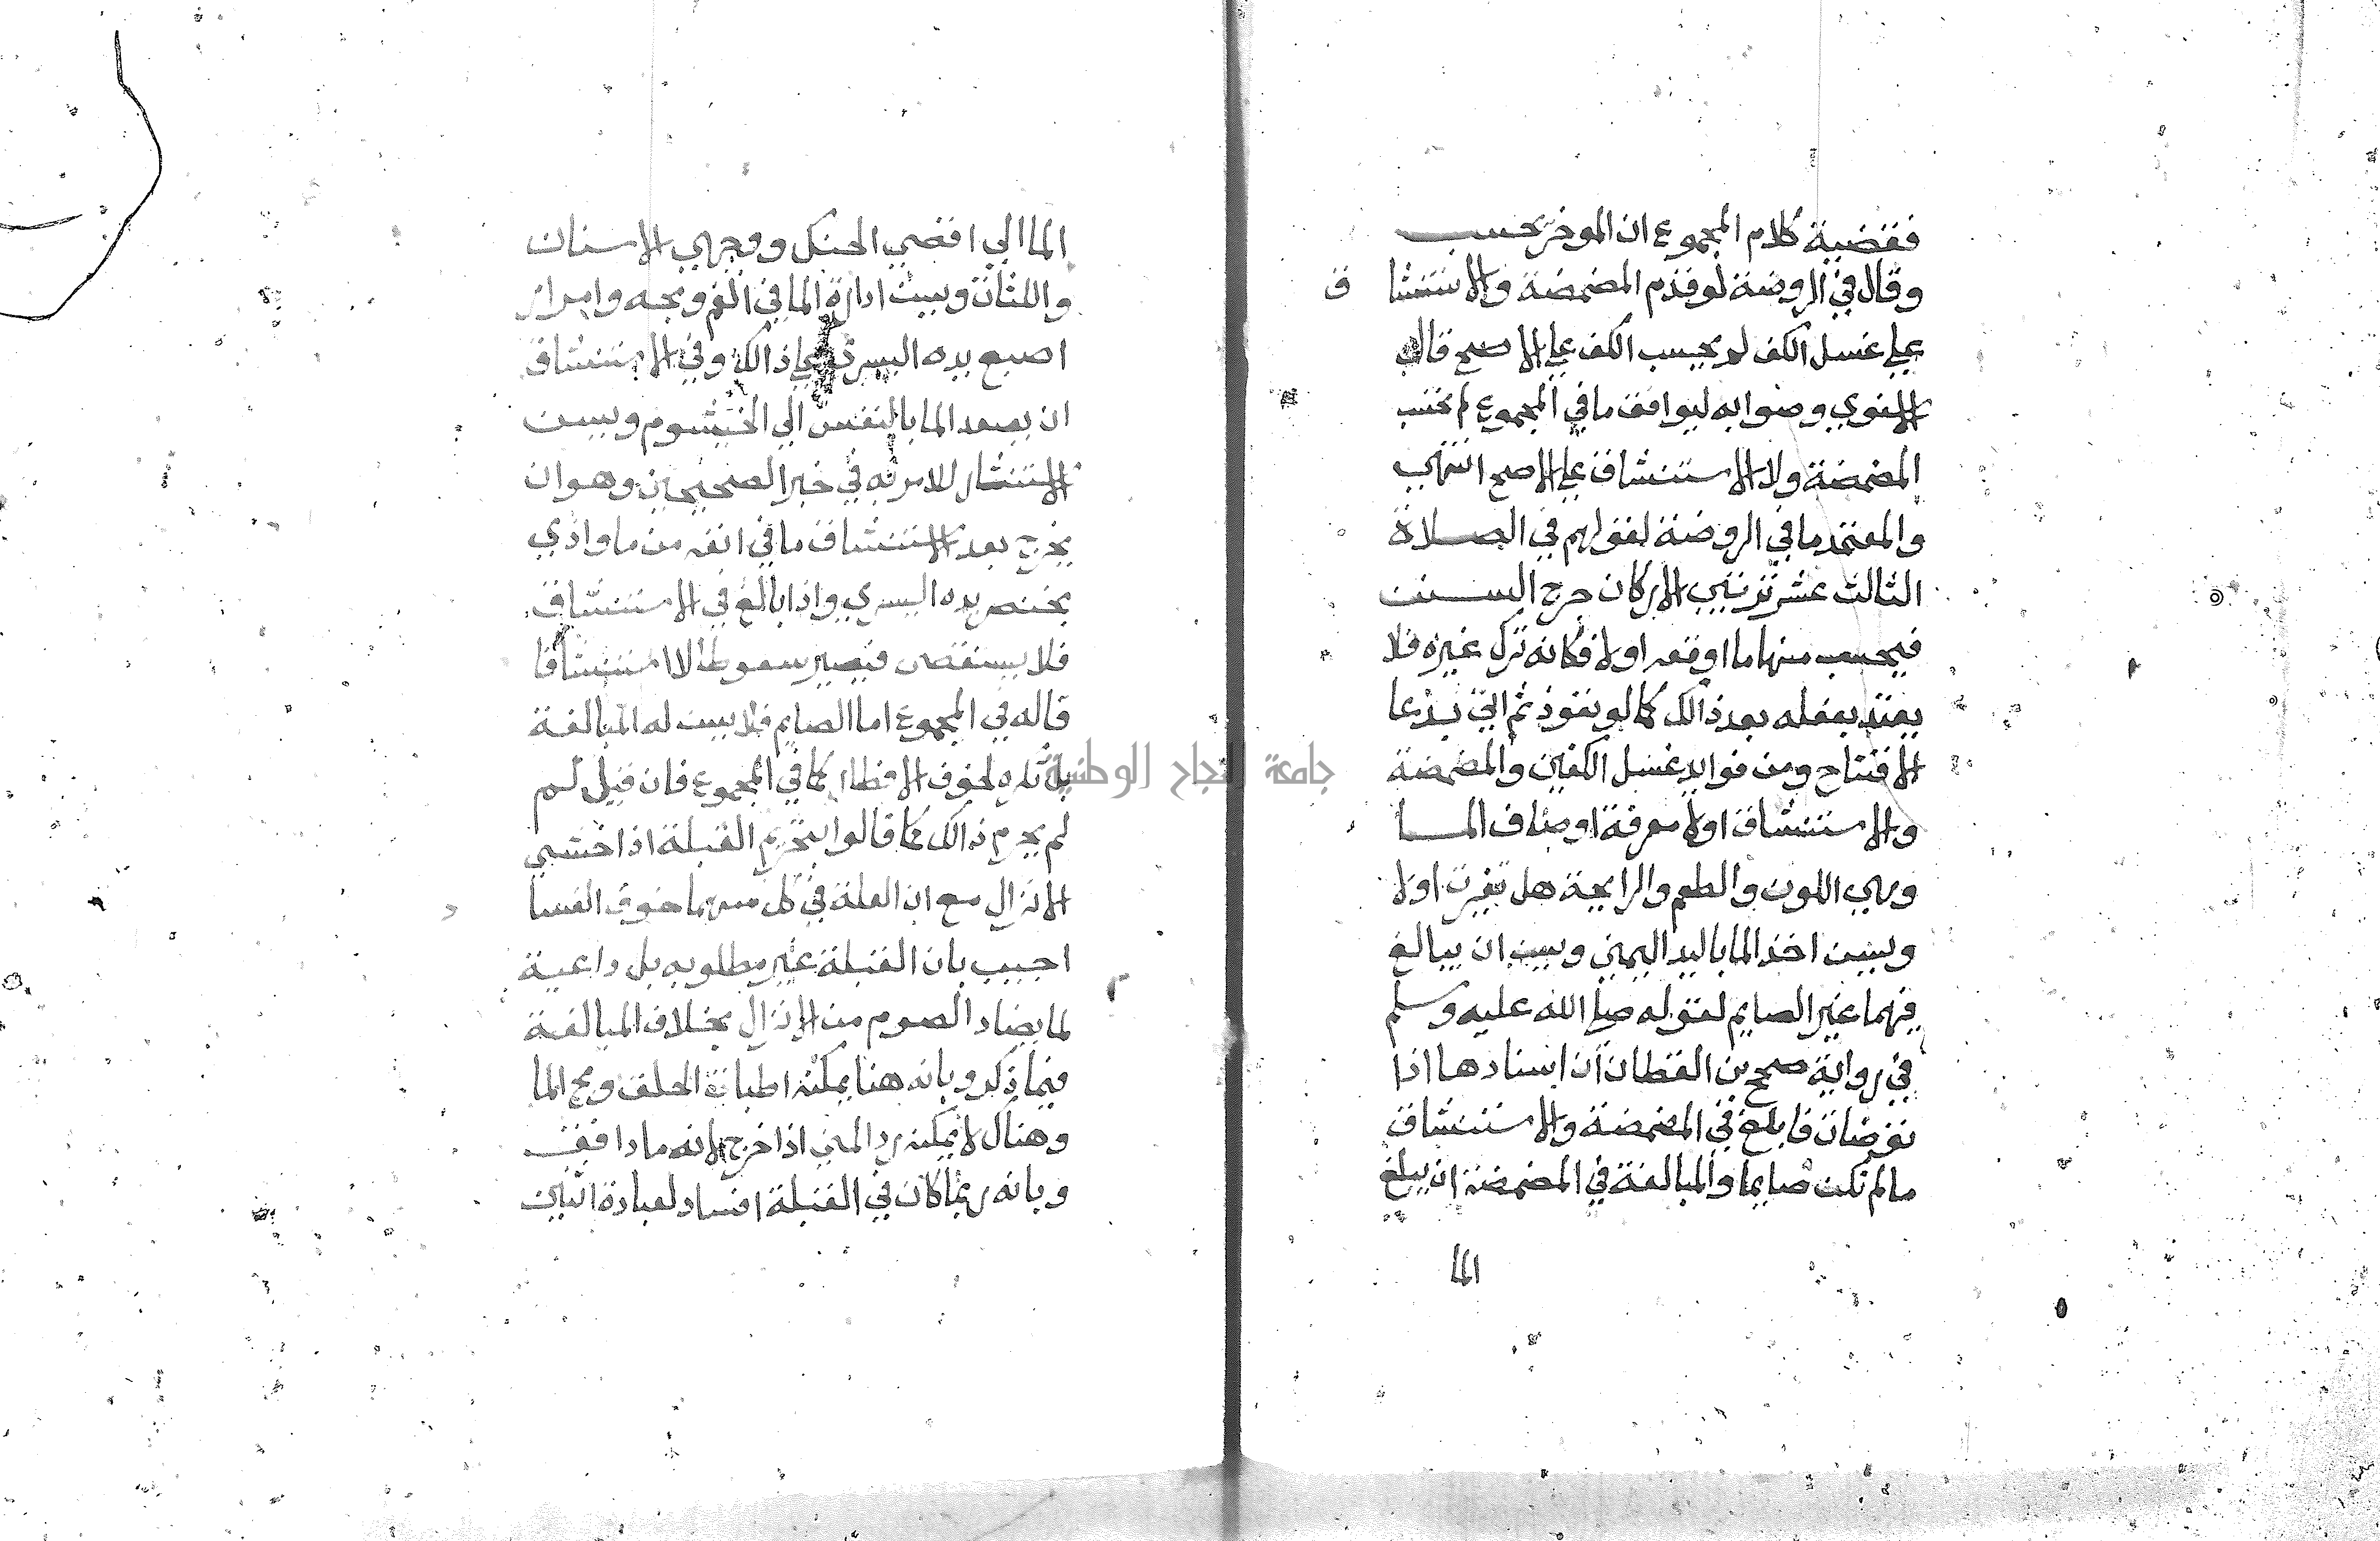 فقضية كلام المجموع ان الموخر يحسب
وقال في الروضة لو قدم المضمضة والاستنشاق
علي غسل الكف لم يحسب الكف علي الاصح قال
الاسنوي وصوابه ليوافق ما في المجموع لم تحسب
المضمضة ولا الاستنشاق علي الاصح انتهي
والمعتمد ما في الروضة لقولهم في الصلاة
الثالث عشر ترتيب الاركان خرج السنن
فيحسب منها ما اوقعه اولا فكانه ترك غيره فلا
يعتد بفعله بعد ذالك كما لو تعوذ ثم اتي بدعا
الافتتاح ومن فوايد غسل الكفين والمضمضة
والاستنشاق اولا معرفة اوصاف المــا
وهي اللون والطعم والرايحة هل تغيرت اولا
ويسن اخذ الما باليد اليمني ويسن ان يبالغ
فيهما غير الصايم لقوله صلي الله عليه وسلم
في رواية صحح بن القطان ان اسنادها اذا
توضات فابلغ في المضمضة والاستنشاق
مالم تكن صايما والمبالغة في المضمضة ان يبلغ
الما
الما الي اقصي الحنك ووجهي الاسنان
واللثات ويسن ادارة الما في الفم ومجه وامرار
اصبع يده اليسري علي ذالك وفي الاستنشاق
ان يصعد الما بالنفس الي الخيشوم ويسن
الاستنثار للامر به في خبر الصحيحين وهو ان
يخرج بعد الاستنشاق ما في انفه من ما واذي
بخنصر يده اليسري واذا بالغ في الاستنشاق
فلا يستقصي فيصير سعوطا لا استنشاقا
قاله في المجموع اما الصايم فلا يسن له المبالغة
بل تكره لخوف الافطار كما في المجموع فان قيل لم
لم يحرم ذالك كما قالوا بتحريم القبلة اذا خشي
الانزال مع ان العلة في كل منهما خوف الفسا
اجيب بان القبلة غير مطلوبه بل داعية
لما يضاد الصوم من الانزال بخلاف المبالغة
فيما ذكر وبانه هنا يمكنه اطباق الحلق ومج الما
وهناك لا يمكنه رد المني اذا خرج لانه ما دافق
وبانه ربما كان في القبلة افساد لعبادة اثنين
جامعة النجاح الوطنية